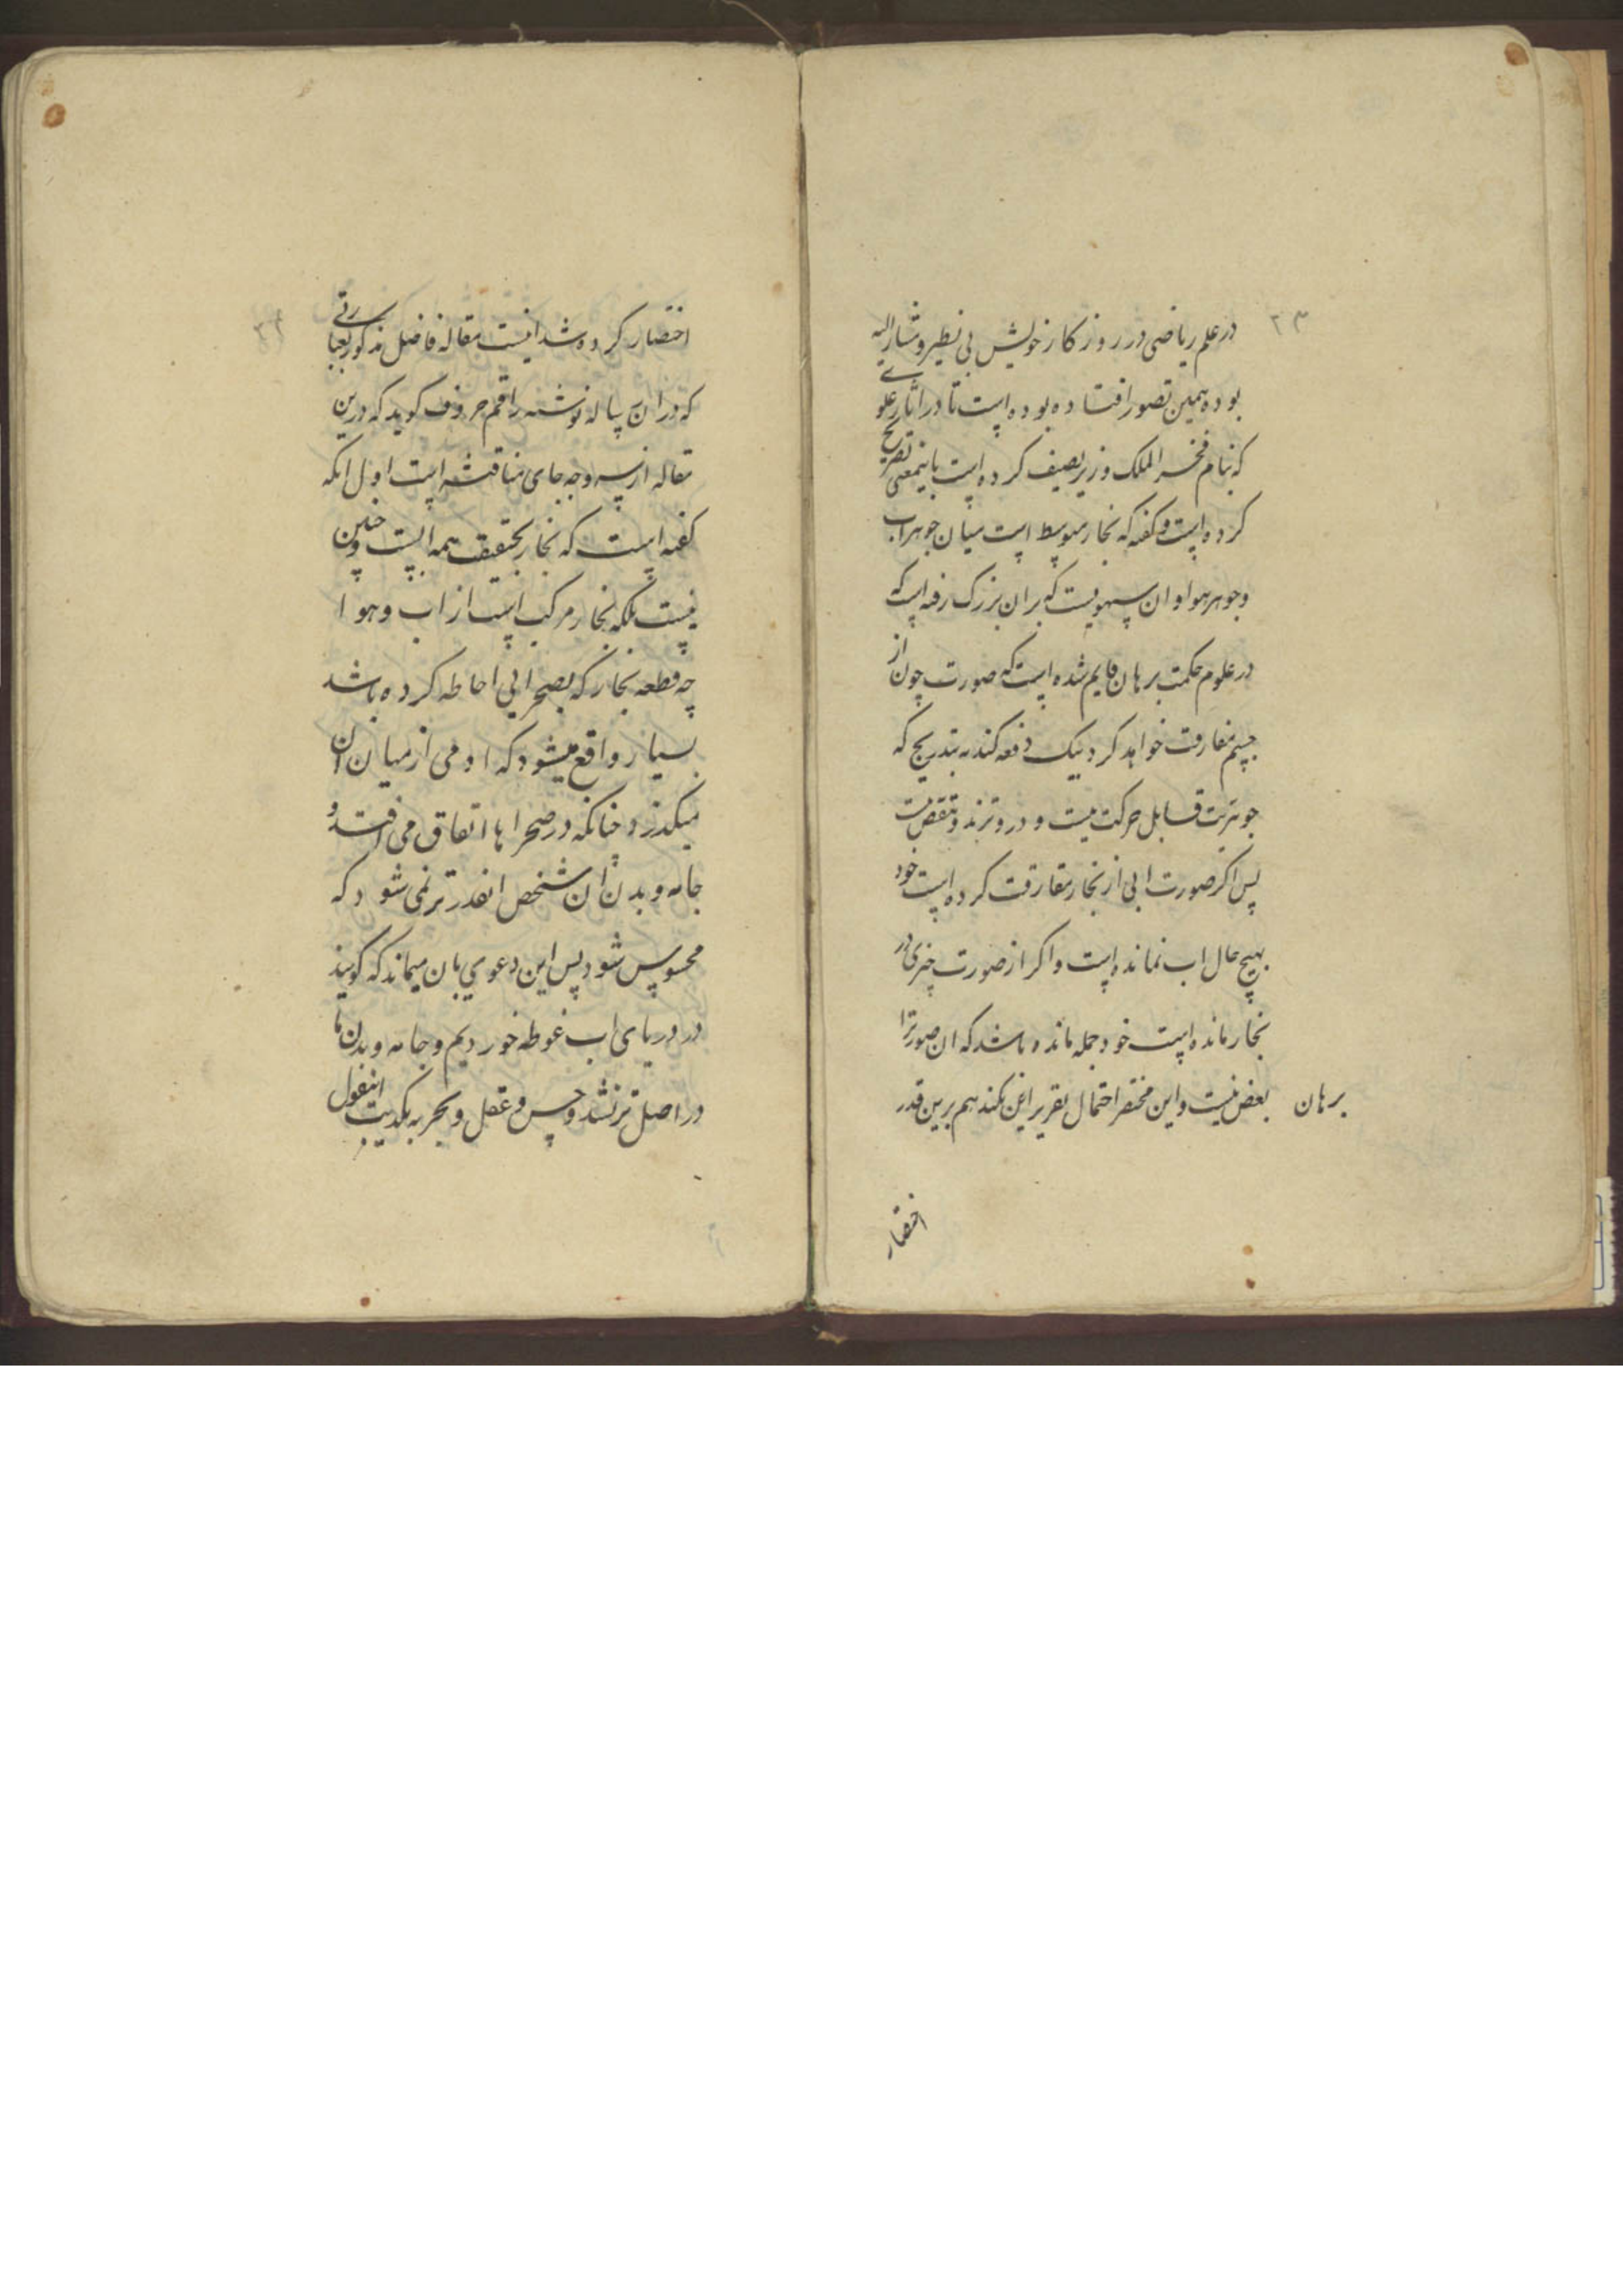 ۲۳
در علم ریاضی در روزکار خویش بی نظیر و مشار الیه
بوده همین تصور افتاده بوده است تا در اثار علوی
که بنام فخر الملک وزیر تصنیف کرده است باینمعنی تصریح
کرده است و کفته که بخار متوسط است میان جوهر اب
و جوهر هوا و ان سهویست که بر ان بزرک رفته است که
در علوم حکمت برهان قایم شده است که صورت چون از
جسم مفارقت خواهد کرد بیک دفعه کند نه بتدریج که
جوهریت قابل حرکت نیست و درو تزید و تنقص نیست
پس اکر صورت ابی از بخار مفارقت کرده است خود
بهیچ حال اب نمانده است و اکر از صورت چیزی در
بخار مانده است خود جمله مانده باشد که ان صورترا
بعض نیست و این مختصر احتمال تقریر این نکند هم برین قدر
برهان
اختصار
۲۴
اختصار کرده شد اینست مقاله فاضل مذکور بعبارتی
که در ان رساله نوشته راقم حروف کوید که درین
مقاله از سه وجه جای مناقشه است اول انکه
کفته است که بخار بحقیقت همه ابست و چنین
نیست بلکه بخار مرکب است از اب و هوا
چه قطعه بخار که بصحرایی احاطه کرده باشد
بسیار واقع میشود که ادمی از میان ان
میکذرد چنانکه در صحراها اتفاق می افتد و
جامه و بدن ان شخص انقدر تر نمی شود که
محسوس شود پس این دعوی بان میماند که کویند
در دریای اب غوطه خوردیم و جامه و بدن ما
در اصل تر نشد و حس و عقل و تجربه بکذیب اینقول